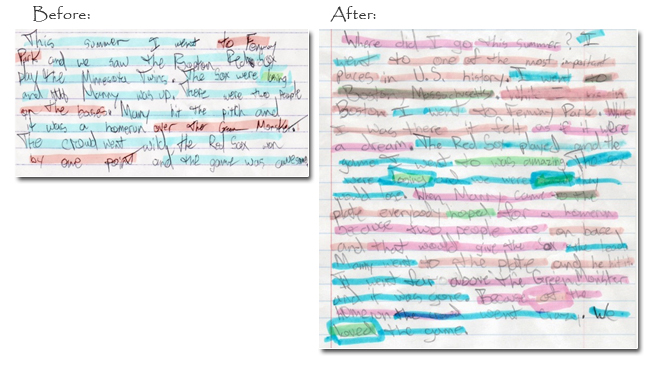 Before:
This summer I went to Fenway
Park and we saw the Boston Red Sox
play the Minnesota Twins. The Sox were losing
and Manny was up. There were two people
on the bases. Manny hit the pitch and
it was a homerun over the Green Monster.
The crowd went wild. The Red Sox won
by one point and the game was awesome
After:
Where did I go this summer? I
went to one of the most important
places in U.S. history. I went to
Boston Massachusetts. While I
Boston I went to Fenway Park. While
I was there it felt as if I were
a dream. The Red Sox played and the
game I went to was amazing. The
were and
When Manny came
plate everybody hoped for a homerun
because two people were on base
and that would give the Sox the lead.
Manny went to the plate and he hit it
It went far above The Green Monster
and it was gone. Because of the
homerun the went We
loved the game.